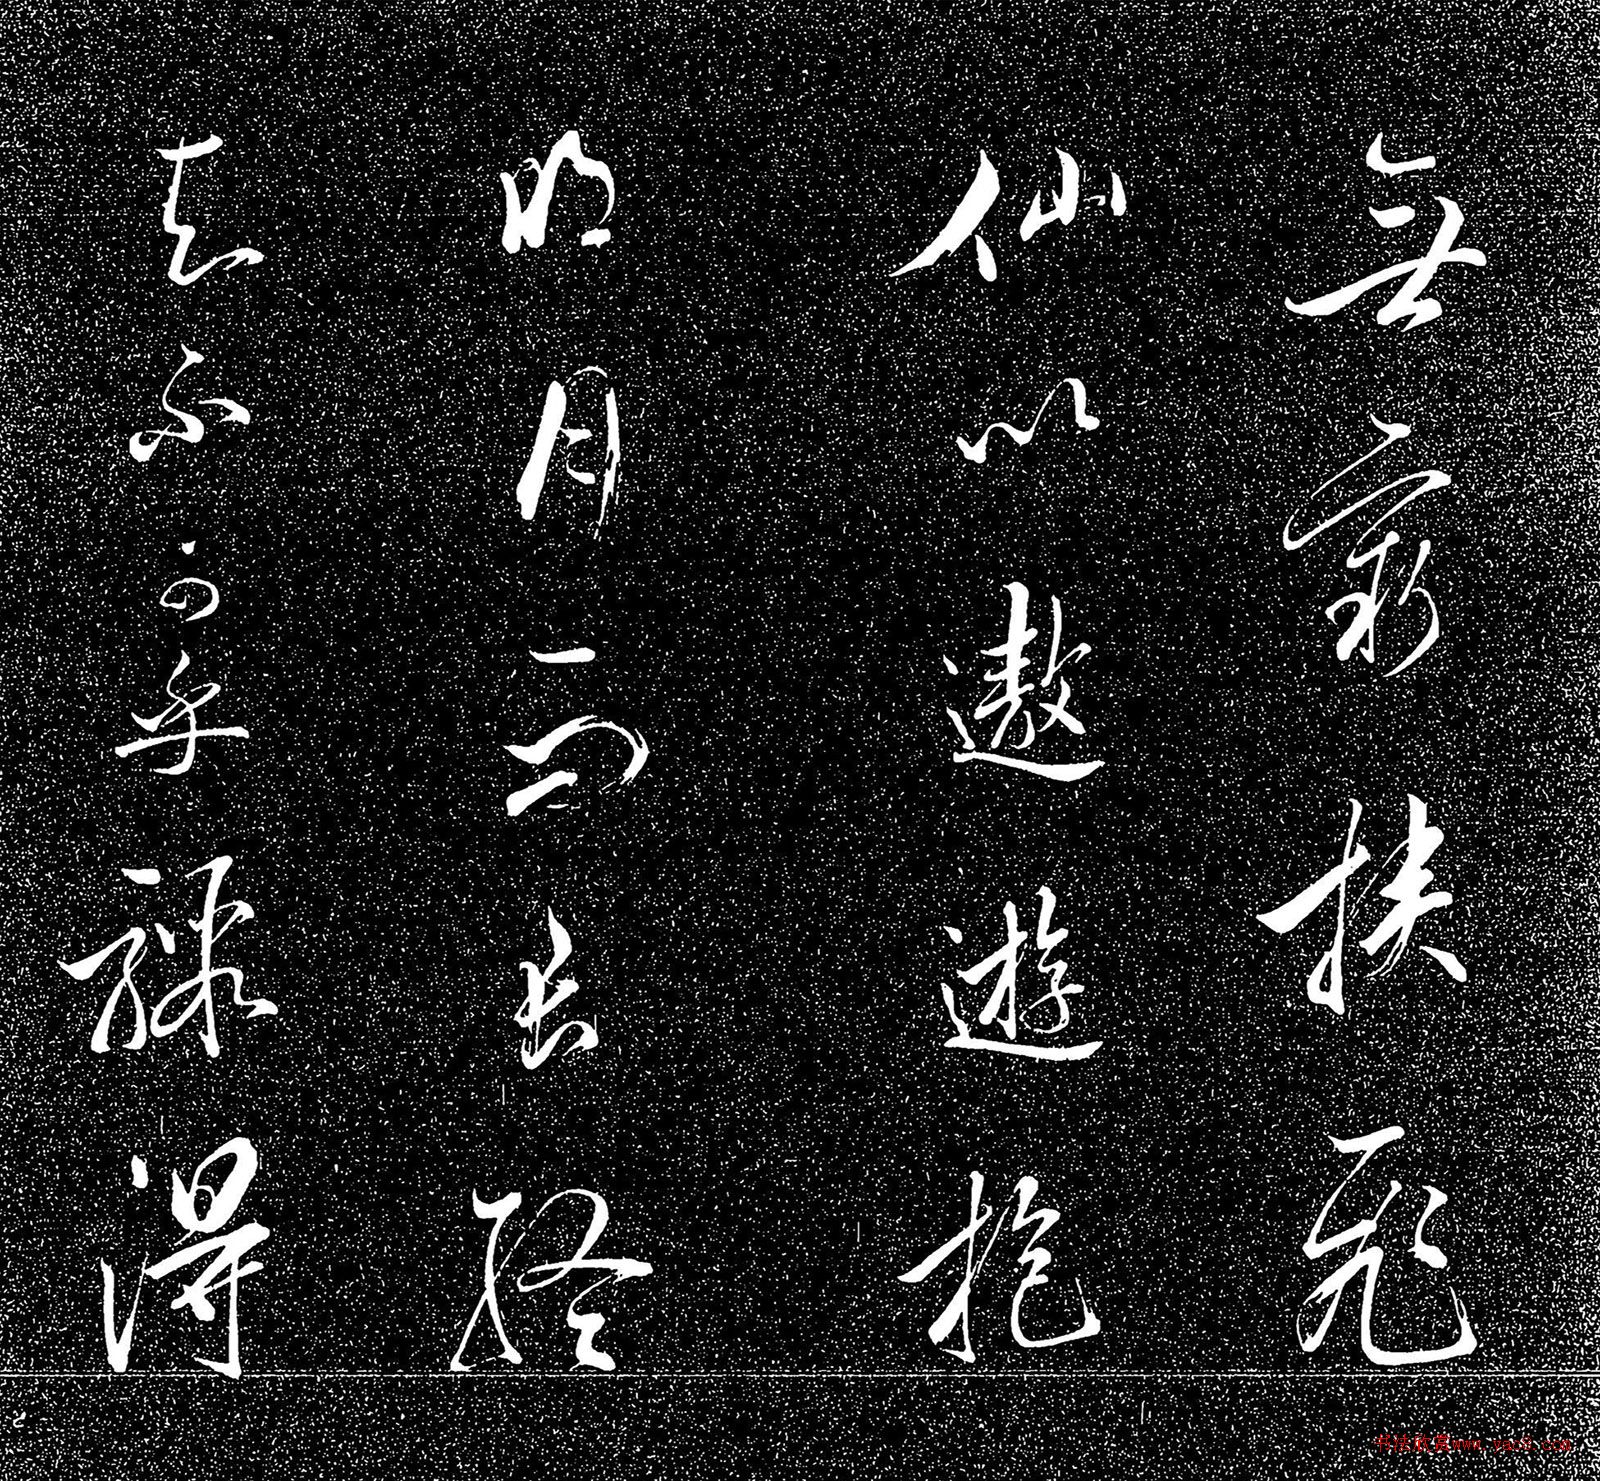 無窮挟飛
仙以遨遊抱
明月而長終
知不可乎驟得
书法欣赏www.yac8.com